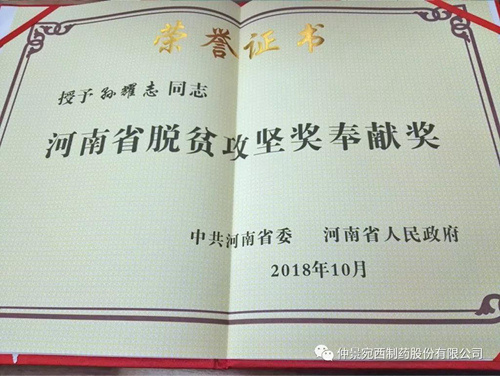 荣誉证书
授予孙耀志同志
河南省脱贫攻坚奖奉献奖
中共河南省委 河南省人民政府
2018年10月
仲景宛西制药股份有限公司